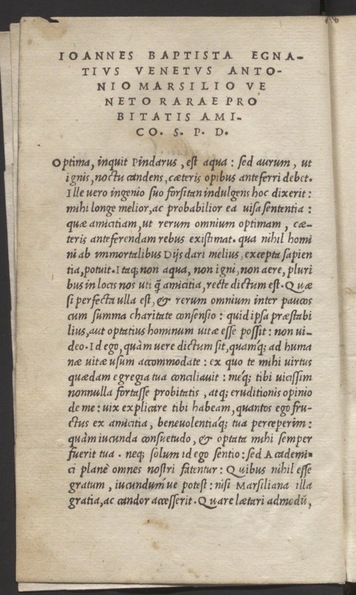 IOANNES BAPTISTA EGNA-
TIVS VENETVS ANTO-
NIO MARSILIO VE
NETO RARAE PRO
BITATIS AMI-
CO. S. P. D.
Optima, inquit Pindarus, est aqua: sed aurum, ut
ignis, noctu candens, cæteris opibus anteferri debet.
Ille vero ingenio suo forsitan indulgens hoc dixerit:
mihi longe melior, ac probabilior ea uisa sententia:
quæ amicitiam, ut rerum omnium optimam, cæ-
teris anteferendam rebus existimat. qua nihil homi
ni ab immortalibus Dijs dari melius, excepta sapien
tia, potuit. Itaq; non aqua, non igni, non aere, pluri
bus in locos nos uti q̃ amicitia, recte dictum est. Quæ
si perfecta ulla est, & rerum omnium inter paucos
cum summa charitate consensio: quid ipsa præstabi
lius, aut optatius hominum uitæ esse possit: non ui-
deo. Id ego, quàm uere dictum sit, quamq; ad huma
næ uitæ usum accommodate: ex quo te mihi uirtus
quædam egregia tua conciliauit: meq; tibi uicissim
nonnulla fortasse probitatis, atq; eruditionis opinio
de me: uix explicare tibi habeam, quantos ego fru-
ctus ex amicitia, beneuolentiaq; tua perceperim:
quàm iucunda consuetudo, & optata mihi semper
fuerit tua. neq; solum id ego sentio: sed Academi-
ci planè omnes nostri fatentur: Quibus nihil esse
gratum, iucundum ue potest: nisi Marsiliana illa
gratia, ac candor accesserit. Quare lætari admodũ,